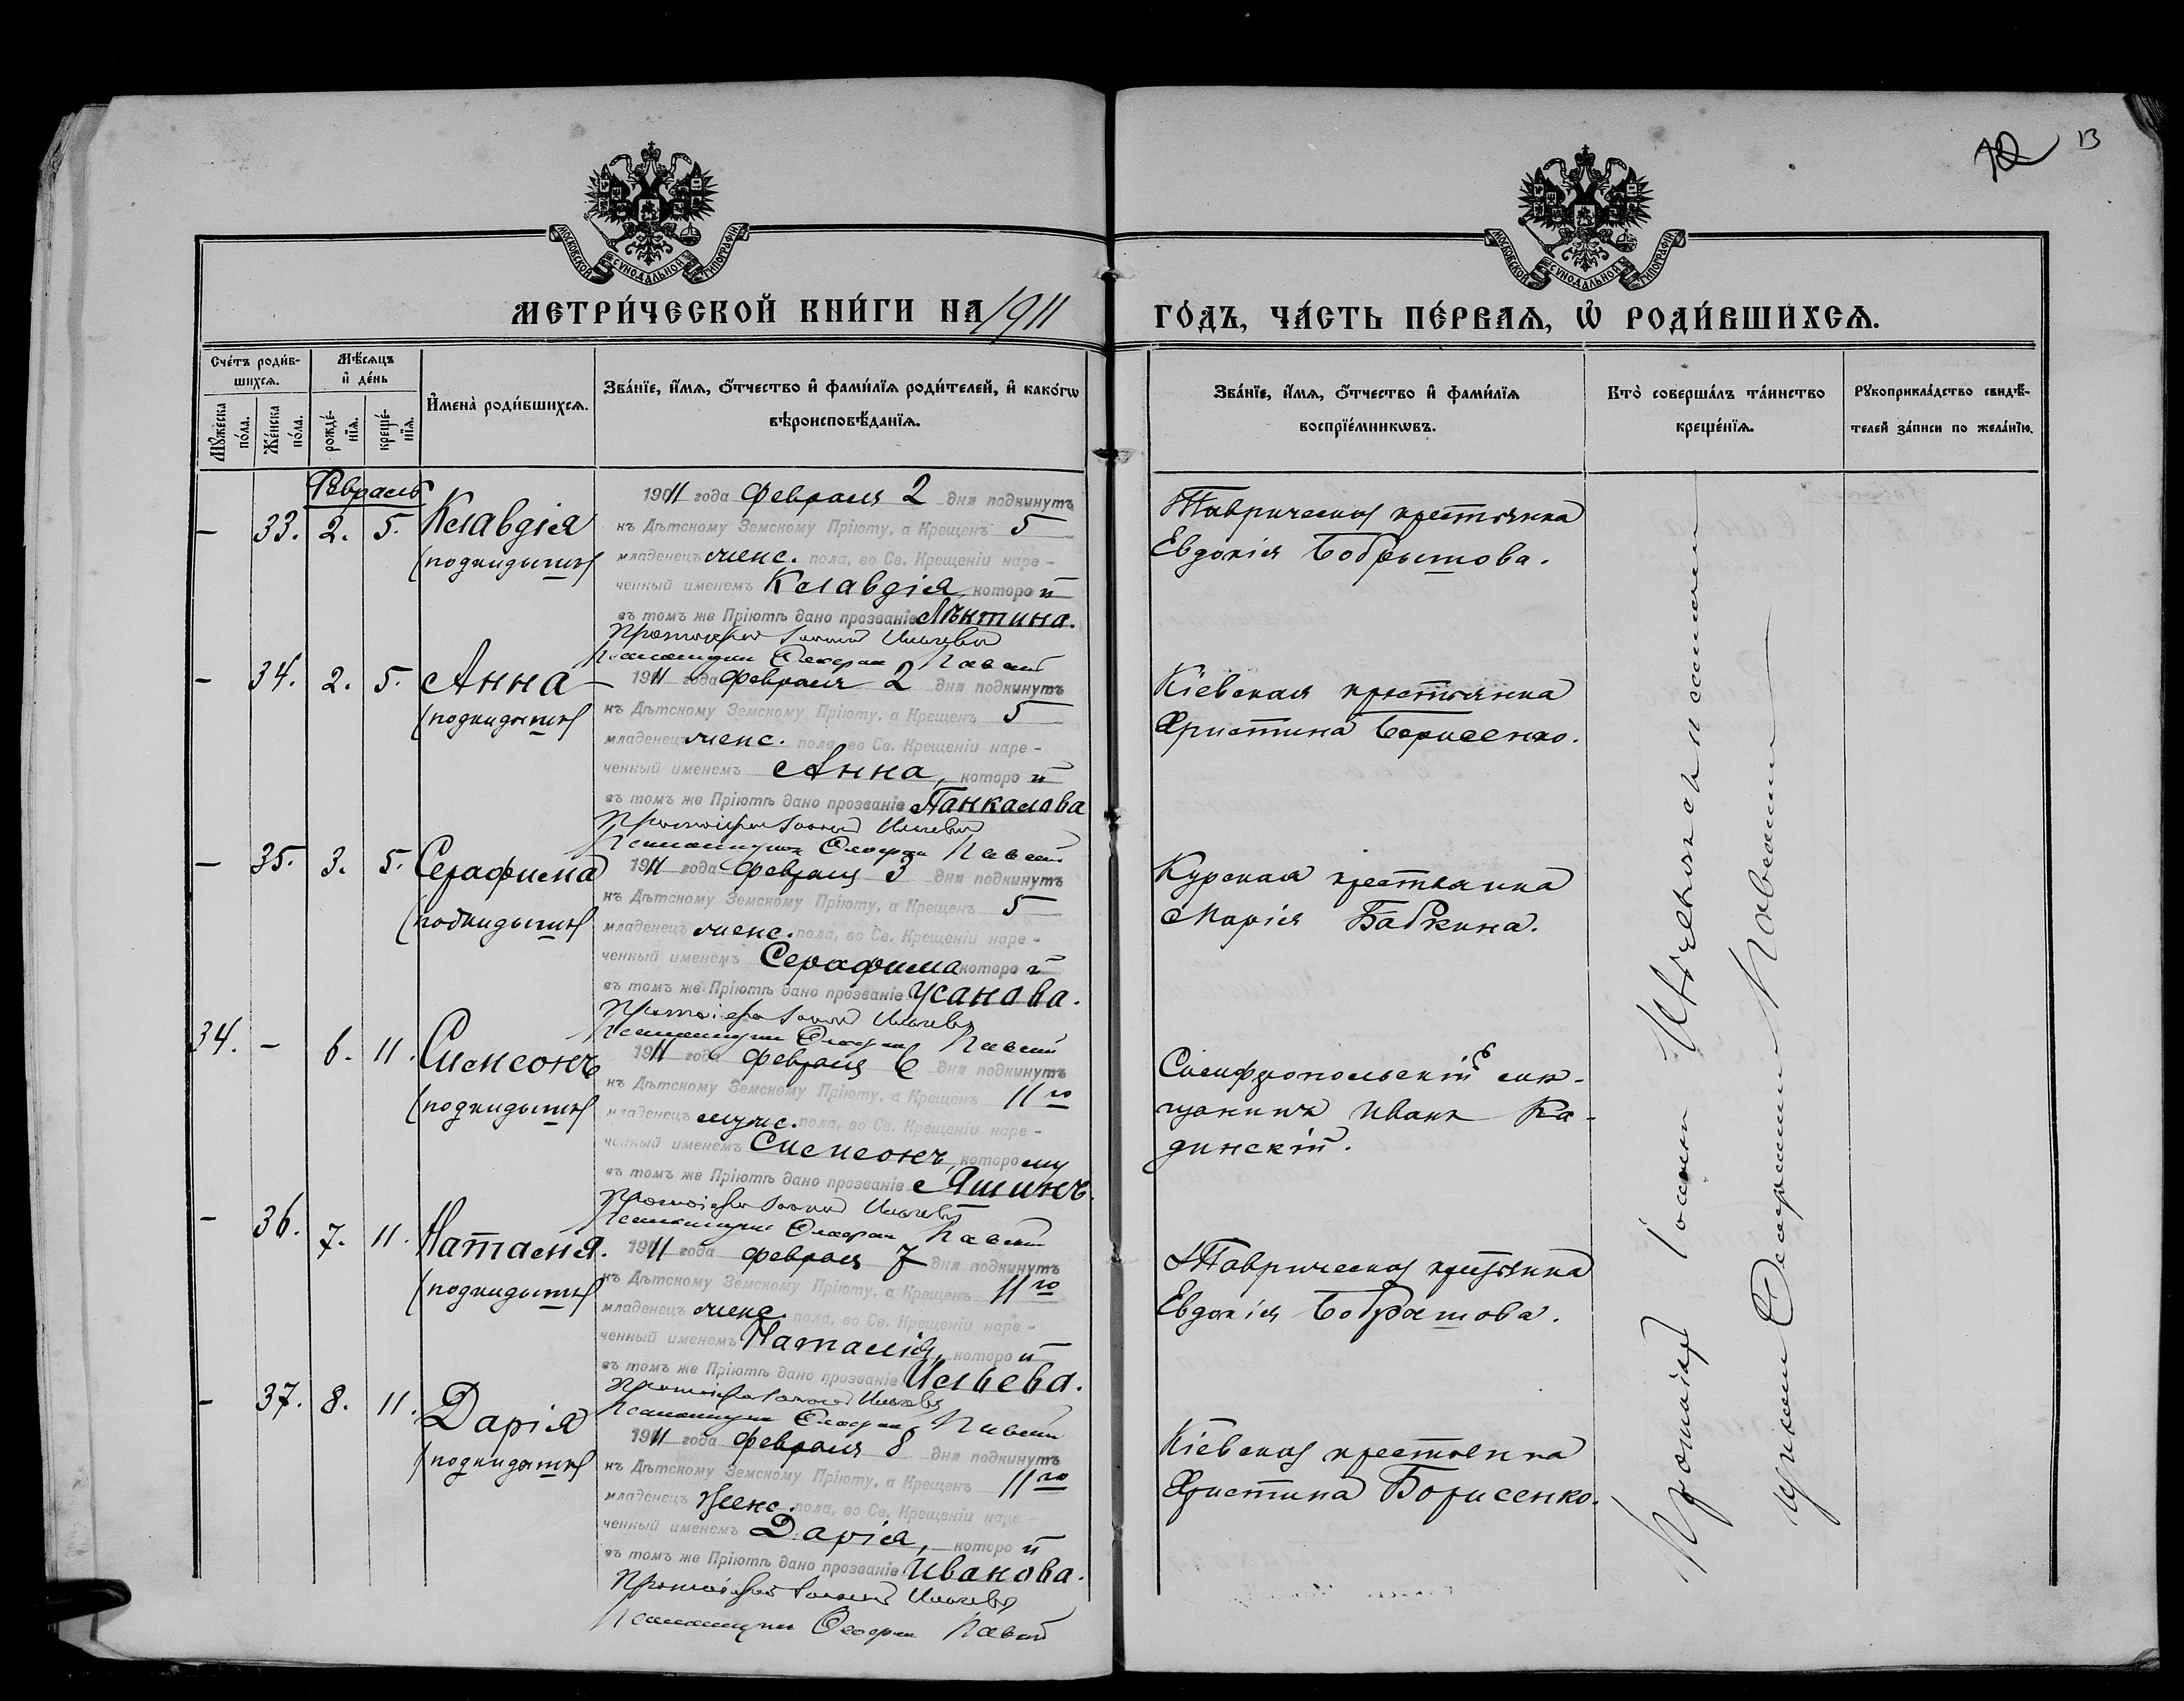 13
МОСКОВСКОЙ СѴНОДАЛЬНОЙ ТИПОГРАФІИ
МОСКОВСКОЙ СѴНОДАЛЬНОЙ ТИПОГРАФІИ
МЕТРИ́ЧЕСКОЙ КНИ́ГИ НА 1911 ГО́ДЪ, ЧА́СТЬ ПЕ́РВАѦ, Ѡ҆ РОДИ́ВШИХСѦ.
Сче́тъ роди́в-
шихсѧ.
Мꙋ́жеска
по́ла.
Же́нска
по́ла.
Мѣ́сѧцъ
и҆ де́нь
рожде́-
нїѧ.
креще́-
нїѧ.
И҆мена̀ роди́вшихсѧ.
Зва́нїе, и҆́мѧ, ѻ҆́тчество и҆ фами́лїѧ роди́телей, и҆ како́гѡ
вѣроисповѣ́данїѧ.
Зва́нїе, и҆́мѧ, ѻ҆́тчество и҆ фами́лїѧ
воспрїе́мникѡвъ.
Кто̀ соверша́лъ та́инство
креще́нїѧ.
Рꙋкоприкла́дство свидѣ́-
телей за́писи по жела́нїю.
Февраль
– 33. 2. 5. Клавдія
(подкидышъ)
1911 года Февраля 2 дня подкинутъ
къ Дѣтскому Земскому Пріюту, а Крещенъ 5
младенецъ женс. пола, во Св. Крещеніи наре-
ченный именемъ Клавдія, которой
въ томъ же Пріютѣ дано прозваніе Лѣктина.
Протоіерей Іоаннъ
Псаломщикъ
Таврическая крестьянка
Евдокія Бобрышова.
– 34. 2. 5. Анна
(подкидышъ)
1911 года Февраля 2 дня подкинутъ
къ Дѣтскому Земскому Пріюту, а Крещенъ 5
младенецъ женс. пола, во Св. Крещеніи наре-
ченный именемъ Анна, которой
въ томъ же Пріютѣ дано прозваніе Панкалова
Протоіерей Іоаннъ
Псаломщикъ
Кіевская крестьянка
Христина Борисенко.
– 35. 3. 5. Серафима
(подкидышъ)
1911 года Февраля 3 дня подкинутъ
къ Дѣтскому Земскому Пріюту, а Крещенъ 5
младенецъ женс. пола, во Св. Крещеніи наре-
ченный именемъ Серафима которой
въ томъ же Пріютѣ дано прозваніе Усанова.
Протоіерей Іоаннъ
Псаломщикъ
Курская крестьянка
Марія Бабкина.
34. – 6. 11. Симеонъ
(подкидышъ)
1911 года Февраля 6 дня подкинутъ
къ Дѣтскому Земскому Пріюту, а Крещенъ 11го
младенецъ мужс. пола, во Св. Крещеніи наре-
ченный именемъ Симеонъ, которому
въ томъ же Пріютѣ дано прозваніе Яшинъ.
Протоіерей Іоаннъ
Псаломщикъ
Симферопольскій мѣ-
щанинъ Иванъ Ка-
динскій.
– 36. 7. 11. Наталія.
(подкидышъ)
1911 года Февраля 7 дня подкинутъ
къ Дѣтскому Земскому Пріюту, а Крещенъ 11го
младенецъ женс. пола, во Св. Крещеніи наре-
ченный именемъ Наталія, которой
въ томъ же Пріютѣ дано прозваніе Ильева.
Протоіерей Іоаннъ
Псаломщикъ
Таврическая крестьянка
Евдокія Бобрашова.
– 37. 8. 11. Дарія
(подкидышъ)
1911 года Февраля 8 дня подкинутъ
къ Дѣтскому Земскому Пріюту, а Крещенъ 11го
младенецъ женс. пола, во Св. Крещеніи наре-
ченный именемъ Дарія, которой
въ томъ же Пріютѣ дано прозваніе Иванова.
Протоіерей Іоаннъ
Псаломщикъ
Кіевская крестьянка
Христина Борисенко.
Протоіерей Іоаннъ съ псаломщи-